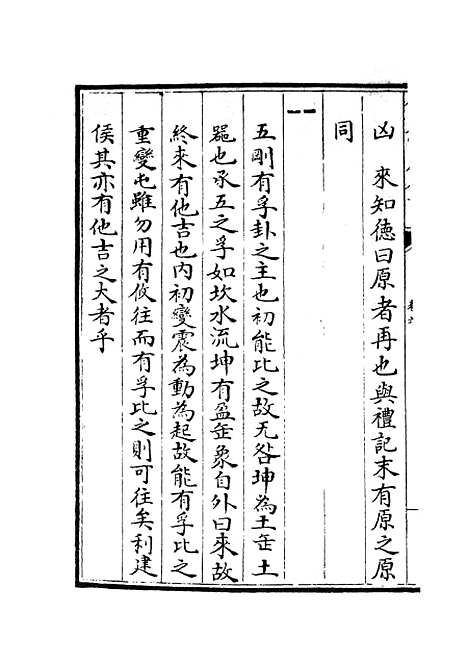 凶　來知德曰原者再也與禮記末有原之原
同
⚋
五剛有孚卦之主也初能比之故无咎坤為土缶土
器也承五之孚如坎水流坤有盈缶象自外曰來故
終來有他吉也內初變震為動為起故能有孚比之
重變屯雖勿用有攸往而有孚比之則可往矣利建
侯其亦有他吉之大者乎